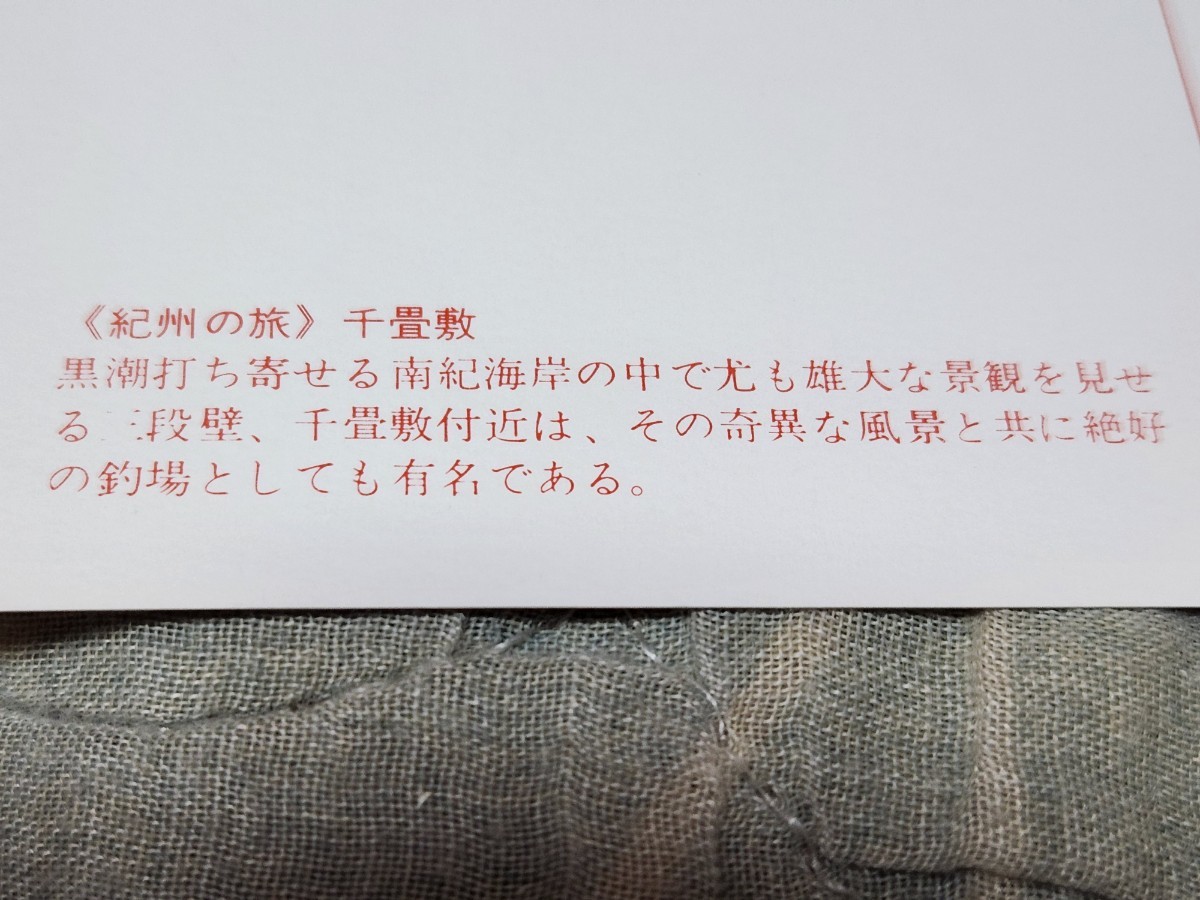 《紀州の旅》千畳敷
黒潮打ち寄せる南紀海岸の中で尤も雄大な景観を見せ
る三段壁、千畳敷付近は、その奇異な風景と共に絶好
の釣場としても有名である。